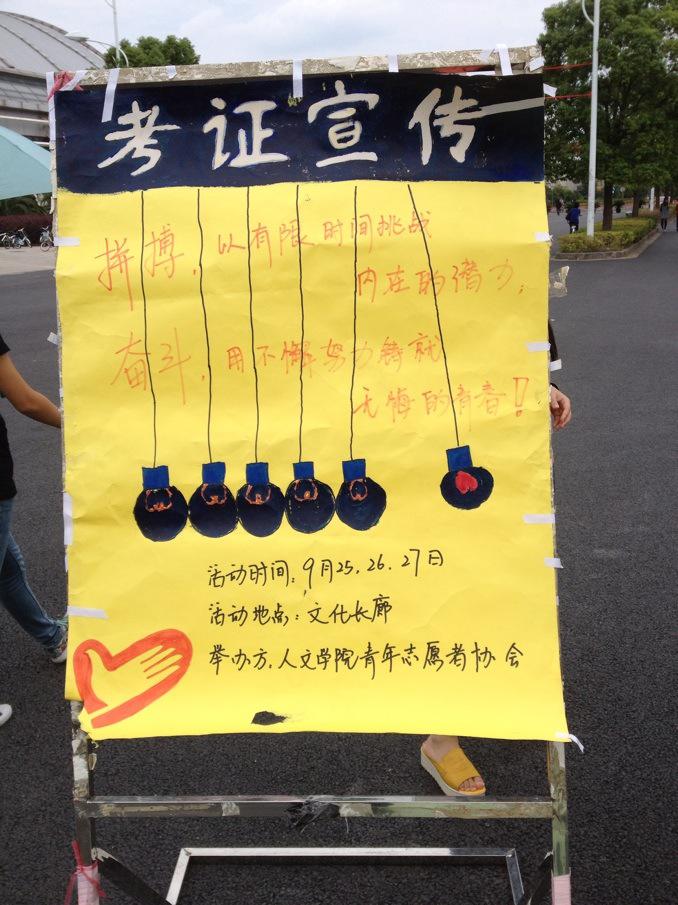 考证宣传
拼搏，以有限时间挑战
内在的潜力，
奋斗，用不懈努力铸就
无悔的青春！
活动时间：9月25.26.27日
活动地点：文化长廊
举办方：人文学院青年志愿者协会